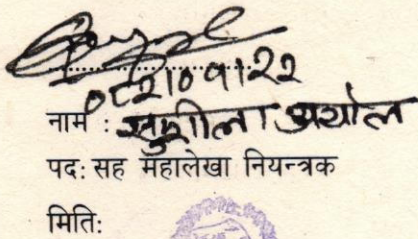 ०८२।०१।२२
नाम : सुशीला अर्याल
पद: सह महालेखा नियन्त्रक
मिति: